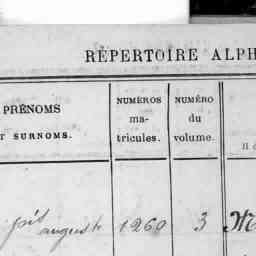 RÉPERTOIRE ALPH
PRÉNOMS
T SURNOMS.
NUMÉROS
ma-
tricules.
NUMÉRO
du
volume.
Il
auguste 1260 3 M